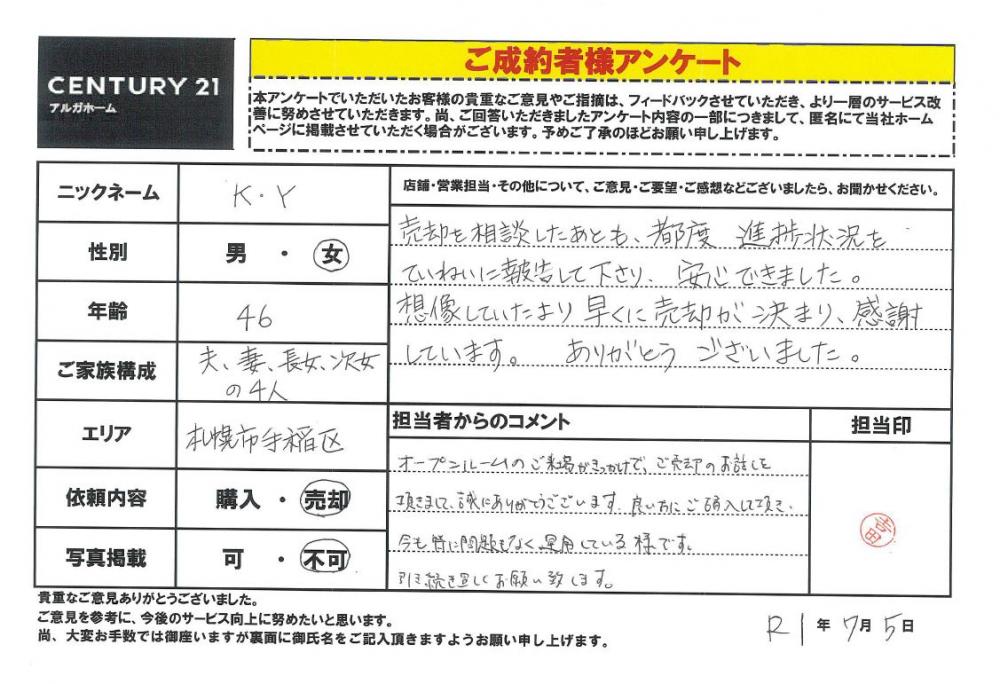 CENTURY 21
アルガホーム
ご成約者様アンケート
本アンケートでいただいたお客様の貴重なご意見やご指摘は、フィードバックさせていただき、より一層のサービス改
善に努めさせていただきます。尚、ご回答いただきましたアンケート内容の一部につきまして、匿名にて当社ホーム
ページに掲載させていただく場合がございます。予めご了承のほどお願い申し上げます。
ニックネーム
K・Y
性別
男 ・ 女
年齢
46
ご家族構成
夫、妻、長女、次女
の4人
エリア
札幌市手稲区
依頼内容
購入 ・ 売却
写真掲載
可 ・ 不可
店舗・営業担当・その他について、ご意見・ご要望・ご感想などございましたら、お聞かせください。
売却を相談したあとも、都度 進捗状況を
ていねいに報告して下さり、安心できました。
想像していたより早くに売却が決まり、感謝
しています。 ありがとうございました。
担当者からのコメント
オープンルームのご来場がきっかけで、ご売却のお話しを
頂きまして、誠にありがとうございます。良い方にご購入して頂き、
今も特に問題もなく運用している様です。
引き続き宜しくお願い致します。
担当印
吉田
貴重なご意見ありがとうございました。
ご意見を参考に、今後のサービス向上に努めたいと思います。
尚、大変お手数では御座いますが裏面に御氏名をご記入頂きますようお願い申し上げます。
R1年7月5日